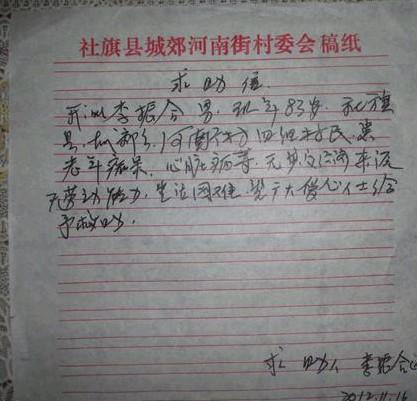 社旗县城郊河南街村委会稿纸
求助信
我叫李振合 男，现年83岁，社旗
县城郊乡河南街村四组村民，患
老年痴呆，心脏病等，无其它经济来源
无劳动能力，生活困难，望广大爱心人士给
予救助．
求助人 李振合
2012.11.16